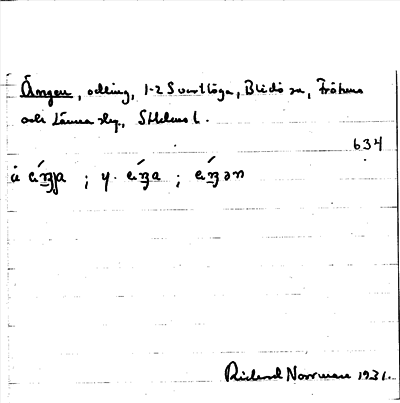 Ängen, odling, 1-2 Svartlöga, Blidö sn, Frötuna
och Länna skg, Sthlms l.
634
å ; y. ; 
Rickard Norrman 1931.